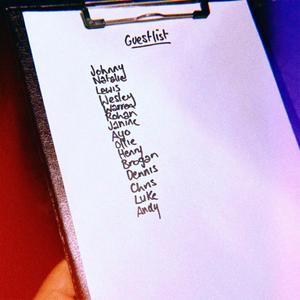 Guestlist
Johnny
Natalie
Lewis
Wesley
Warren
Rohan
Janine
Ayo
Ollie
Henry
Brogan
Dennis
Chris
Luke
Andy